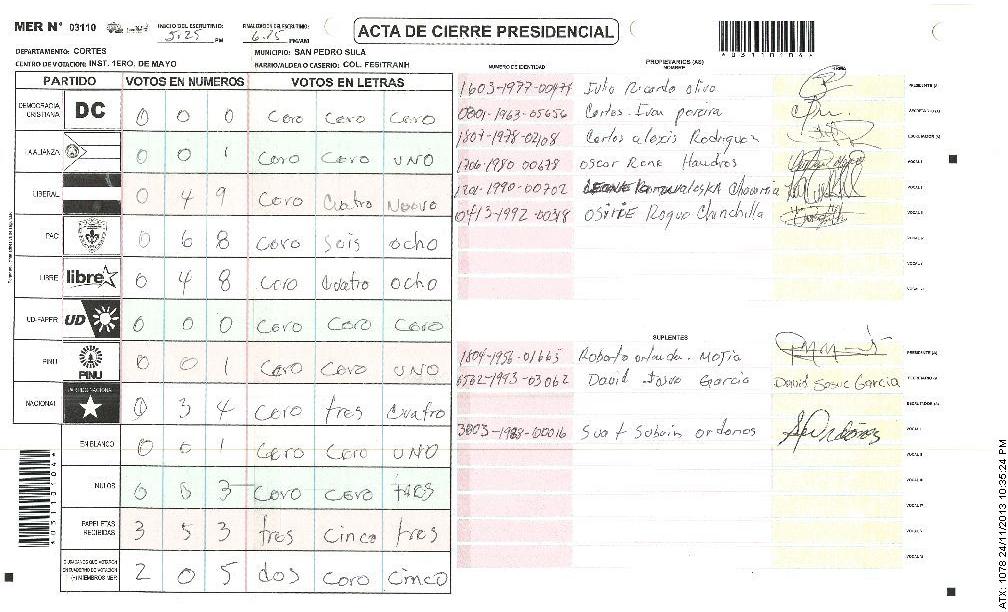 MER N° 03110
INICIO DEL ESCRUTINIO: 5:25 PM
FINALIZACION DEL ESCRUTINIO: 6:15 PM/AM
ACTA DE CIERRE PRESIDENCIAL
DEPARTAMENTO: CORTES
MUNICIPIO: SAN PEDRO SULA
CENTRO DE VOTACION: INST. 1ERO. DE MAYO
BARRIO/ALDEA O CASERIO: COL. FESITRANH
PARTIDO VOTOS EN NUMEROS VOTOS EN LETRAS
DEMOCRACIA CRISTIANA DC 0 0 0 Cero Cero Cero
LA ALIANZA 0 0 1 Cero Cero UNO
LIBERAL 0 4 9 Cero Cuatro
PAC 0 6 8 Cero Seis ocho
LIBRE libre 0 4 8 Cero Cuatro ocho
UD-FAPER UD 0 0 0 Cero Cero Cero
PINU PINU 0 0 1 Cero Cero UNO
NACIONAL PARTIDO NACIONAL 0 3 4 Cero tres Cuatro
EN BLANCO 0 0 1 Cero Cero UNO
NULOS 0 0 3 Cero Cero tres
PAPELETAS RECIBIDAS 3 5 3 tres Cinco tres
CIUDADANOS QUE VOTARON EN CUADERNO DE VOTACION (+) MIEMBROS MER 2 0 5 dos Cero Cinco
NUMERO DE IDENTIDAD
PROPIETARIOS (AS)
NOMBRE
FIRMA
1603-1977-00474 Julio Ricardo oliva PRESIDENTE (A)
0801-1963-05656 Carlos Ivan pereira SECRETARIO (A)
1807-1978-02108 Carlos alexis Rodriguez ESCRUTADOR (A)
1706-1980-00678 oscar Rene VOCAL I
-1990-00702 VOCAL II
0413-1992-00318 Roque Chinchilla
SUPLENTES
1804-1956-01665 Roberto PRESIDENTE (A)
0502-1993-03062 David Josue Garcia David Josue Garcia SECRETARIO (A)
ESCRUTADOR (A)
VOCAL I
ATX: 1078 24/11/2013 10:35:24 PM